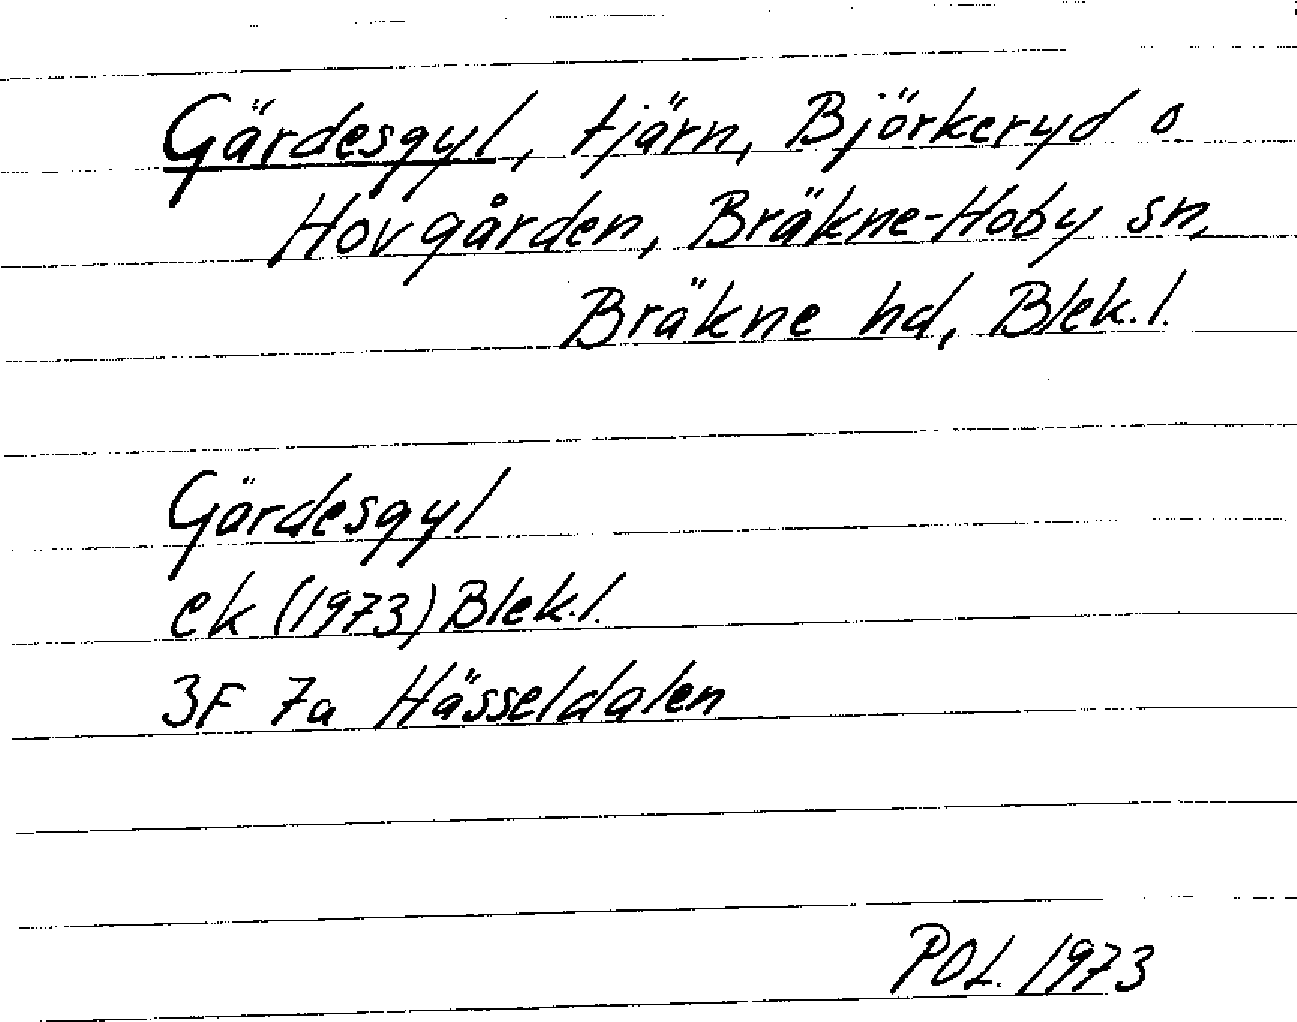 Gärdesgyl, tjärn, Björkeryd o
Hovgården, Bräkne-Hoby sn,
Bräkne hd, Blek. l.
Gärdesgyl
ek (1973) Blek. l.
3F 7a Hässeldalen
POL. 1973